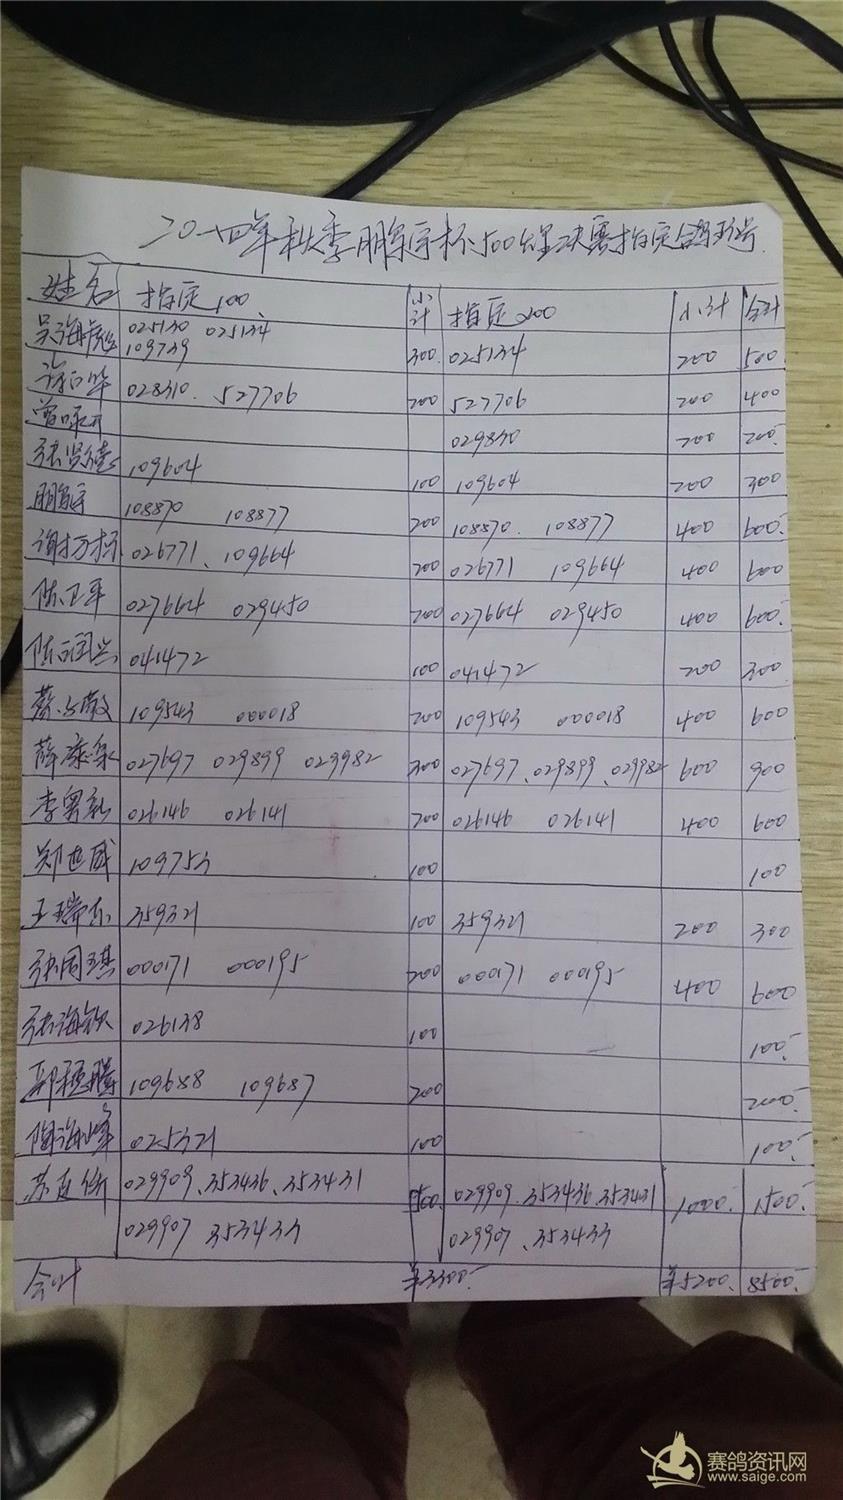 二0一四年秋季鹏宇杯500公里决赛指定鸽环号
姓名 指定100 小计 指定200 小计 合计
吴海彪 025130 025134
109739 300 025134 200 500
028310. 527706 200 527706 200 400
029830 200 200
张贤德 109604 100 109604 200 300
鹏宇 108870 108877 200 108870. 108877 400 600
谢扬标 026771、109664 200 026771 109664 400 600
陈卫平 027664 029450 200 027664 029450 400 600
陈润兴 041472 100 041472 200 300
109543 000018 200 109543 000018 400 600
薛泰泉 027697 029899 029982 300 027697、029899、029982 600 900
026146 026141 200 026146 026141 400 600
郑世盛 109753 100 100
王瑞东 359321 100 359321 200 300
张周琪 000171 000195 200 000171 000195 400 600
张海钦 026138 100 100
郭穗腾 109688 109687 200 200
陶海峰 025321 100 100
029909、353436、353431 500 029909、353436、353431 1000 1500
029907 353433 029907、353433
合计 ¥3300 ¥5200 8500
赛鸽资讯网
www.saige.com